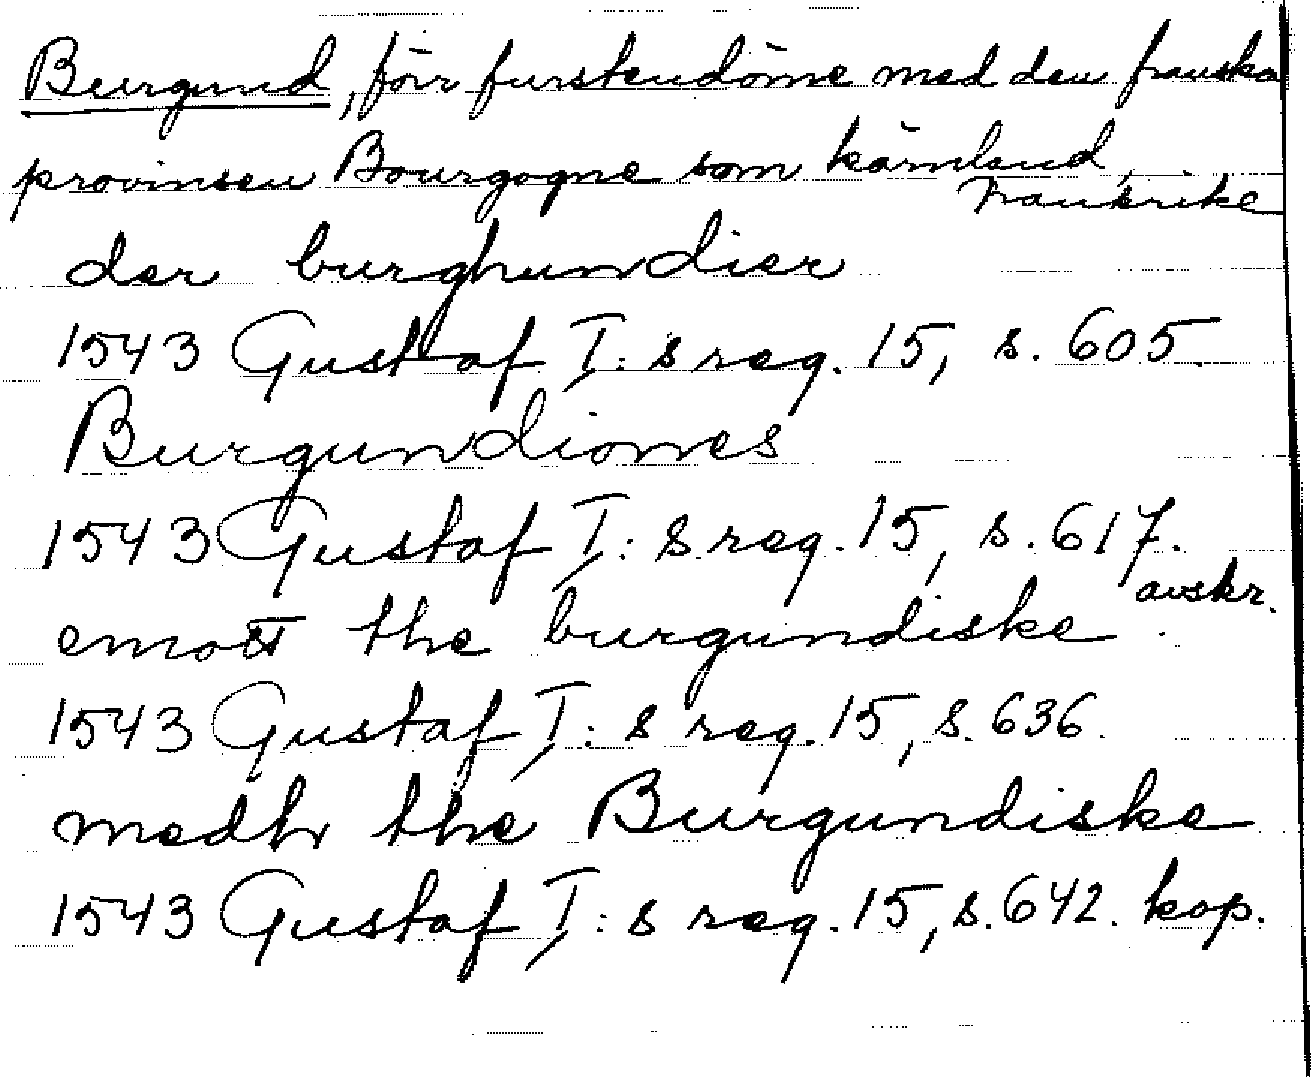 Burgund, förr furstendöme med den franska
provinsen Bourgogne som kärnland,
Frankrike
der burghundier
1543 Gustaf I:s reg. 15, s. 605.
Burgundiones
1543 Gustaf I:s reg. 15, s. 617.
avskr.
emott the burgundiske
1543 Gustaf I:s reg. 15, s. 636.
medh the Burgundiske
1543 Gustaf I:s reg. 15, s. 642. kop.